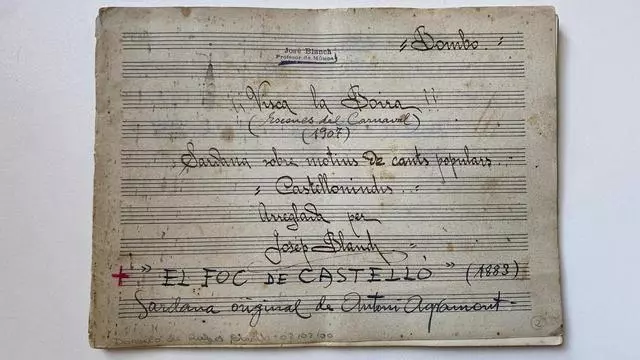 = Bombo =
José Blanch
Profesor de Música
¡¡ Visca la Boira !!
(Escenes del Carnaval)
(1907)
Sardana sobre motius de cants populars
= Castellonindis =
Arreglada per
Josép Blanch
+ " EL FOC DE CASTELLÓ " (1883)
Sardana original de Antoni Agramont
Donació de 07/07/00
2